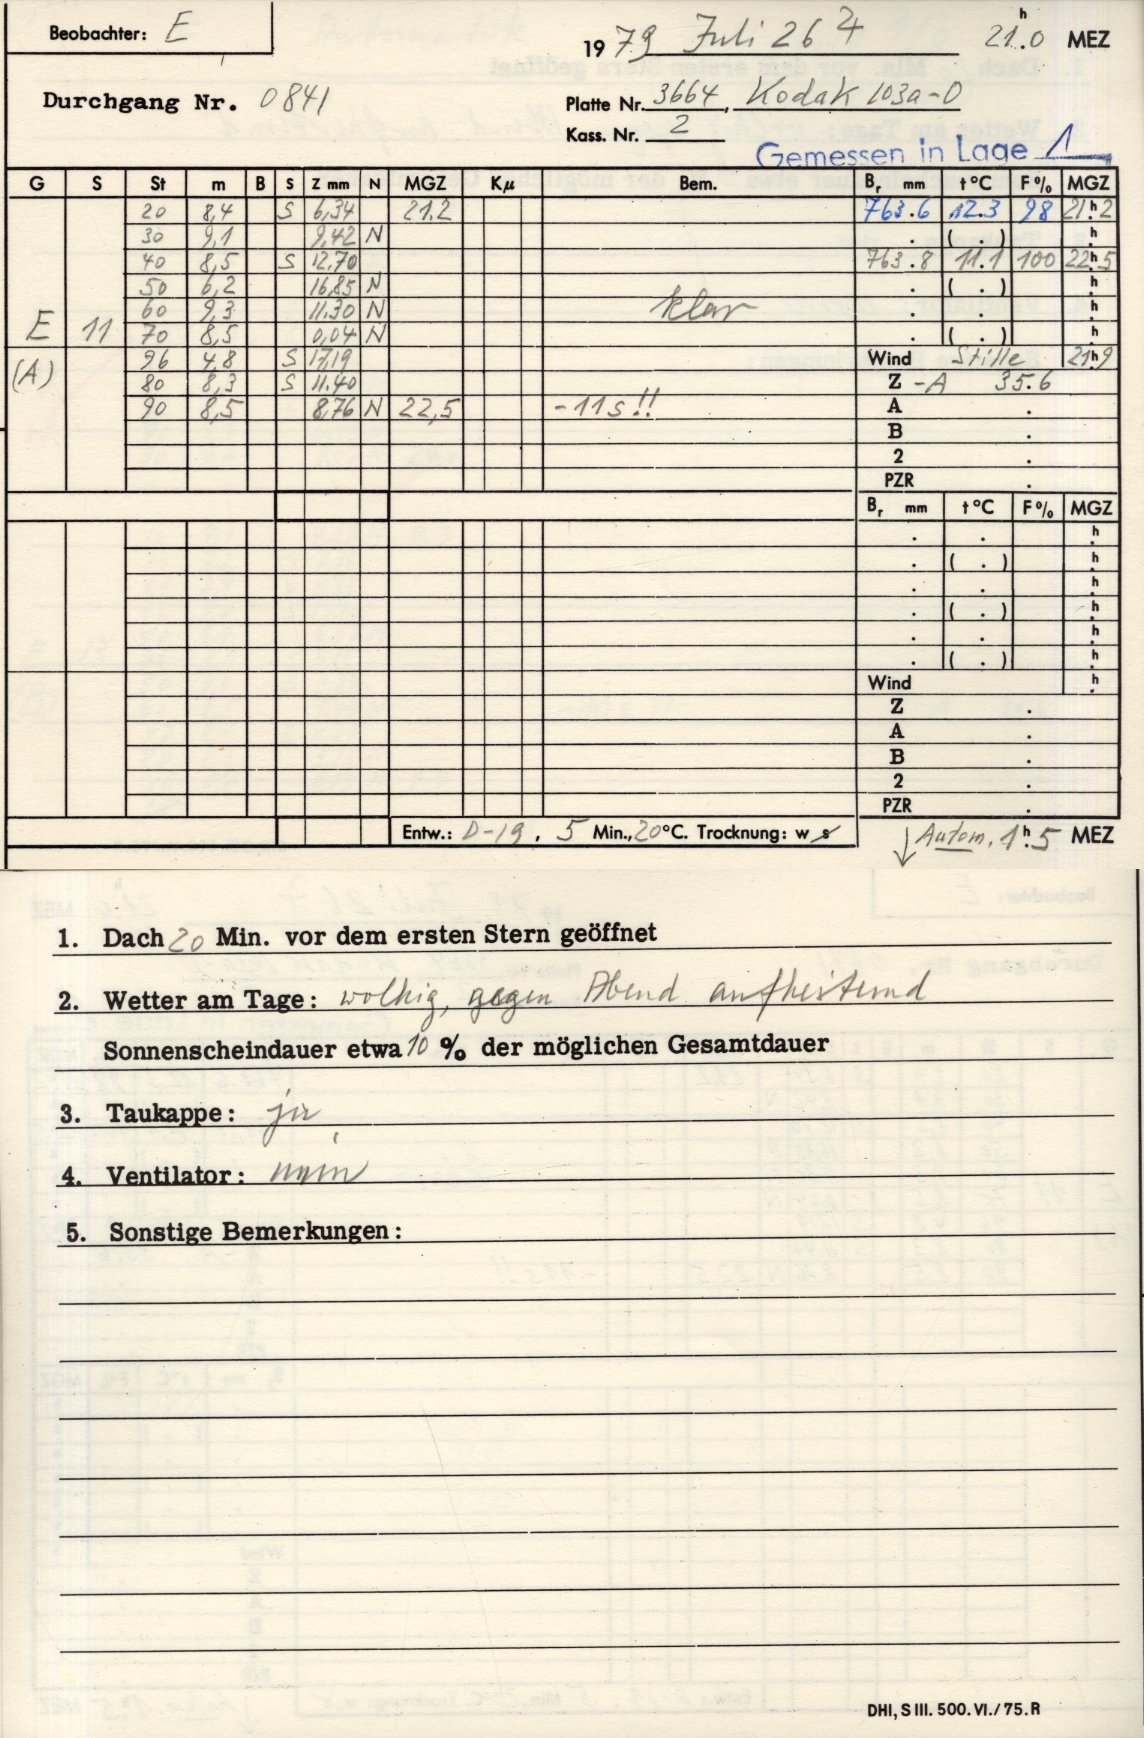 Beobachter: E
1979 Juli 26 21h.0 MEZ
Durchgang Nr. 0841
Platte Nr. 3664, Kodak 103a-O
Kass. Nr. 2
Gemessen in Lage 1
G S St m B S Z mm N MGZ Kμ Bem. Br mm t°C F% MGZ
20 8,4 S 6,34 21.2 763.6 12.3 98 21h.2
30 9,1 9,42 N . ( . ) h.
40 8,5 S 12,70 763.8 11.1 100 22h.5
50 6,2 16,85 N . ( . ) h.
60 9,3 11.30 N klar . . h.
E 11 70 8,5 0,04 N . ( . ) h.
(A) 96 4,8 S 17,19 Wind Stille 21h.9
80 8,3 S 11.40 Z -A 35.6
90 8,5 8,76 N 22,5 -11s!! A .
B .
2 .
PZR .
Br mm t°C F% MGZ
. . h.
. ( . ) h.
. . h.
. ( . ) h.
. . h.
. ( . ) h.
Wind h.
Z .
A .
B .
2 .
PZR .
Entw.: D-19, 5 Min., 20°C. Trocknung: w s Autom. 1h.5 MEZ
1. Dach 20 Min. vor dem ersten Stern geöffnet
2. Wetter am Tage: wolkig, gegen Abend aufheiternd
Sonnenscheindauer etwa 10 % der möglichen Gesamtdauer
3. Taukappe: ja
4. Ventilator: nein
5. Sonstige Bemerkungen:
DHI, S III. 500. VI./75. R